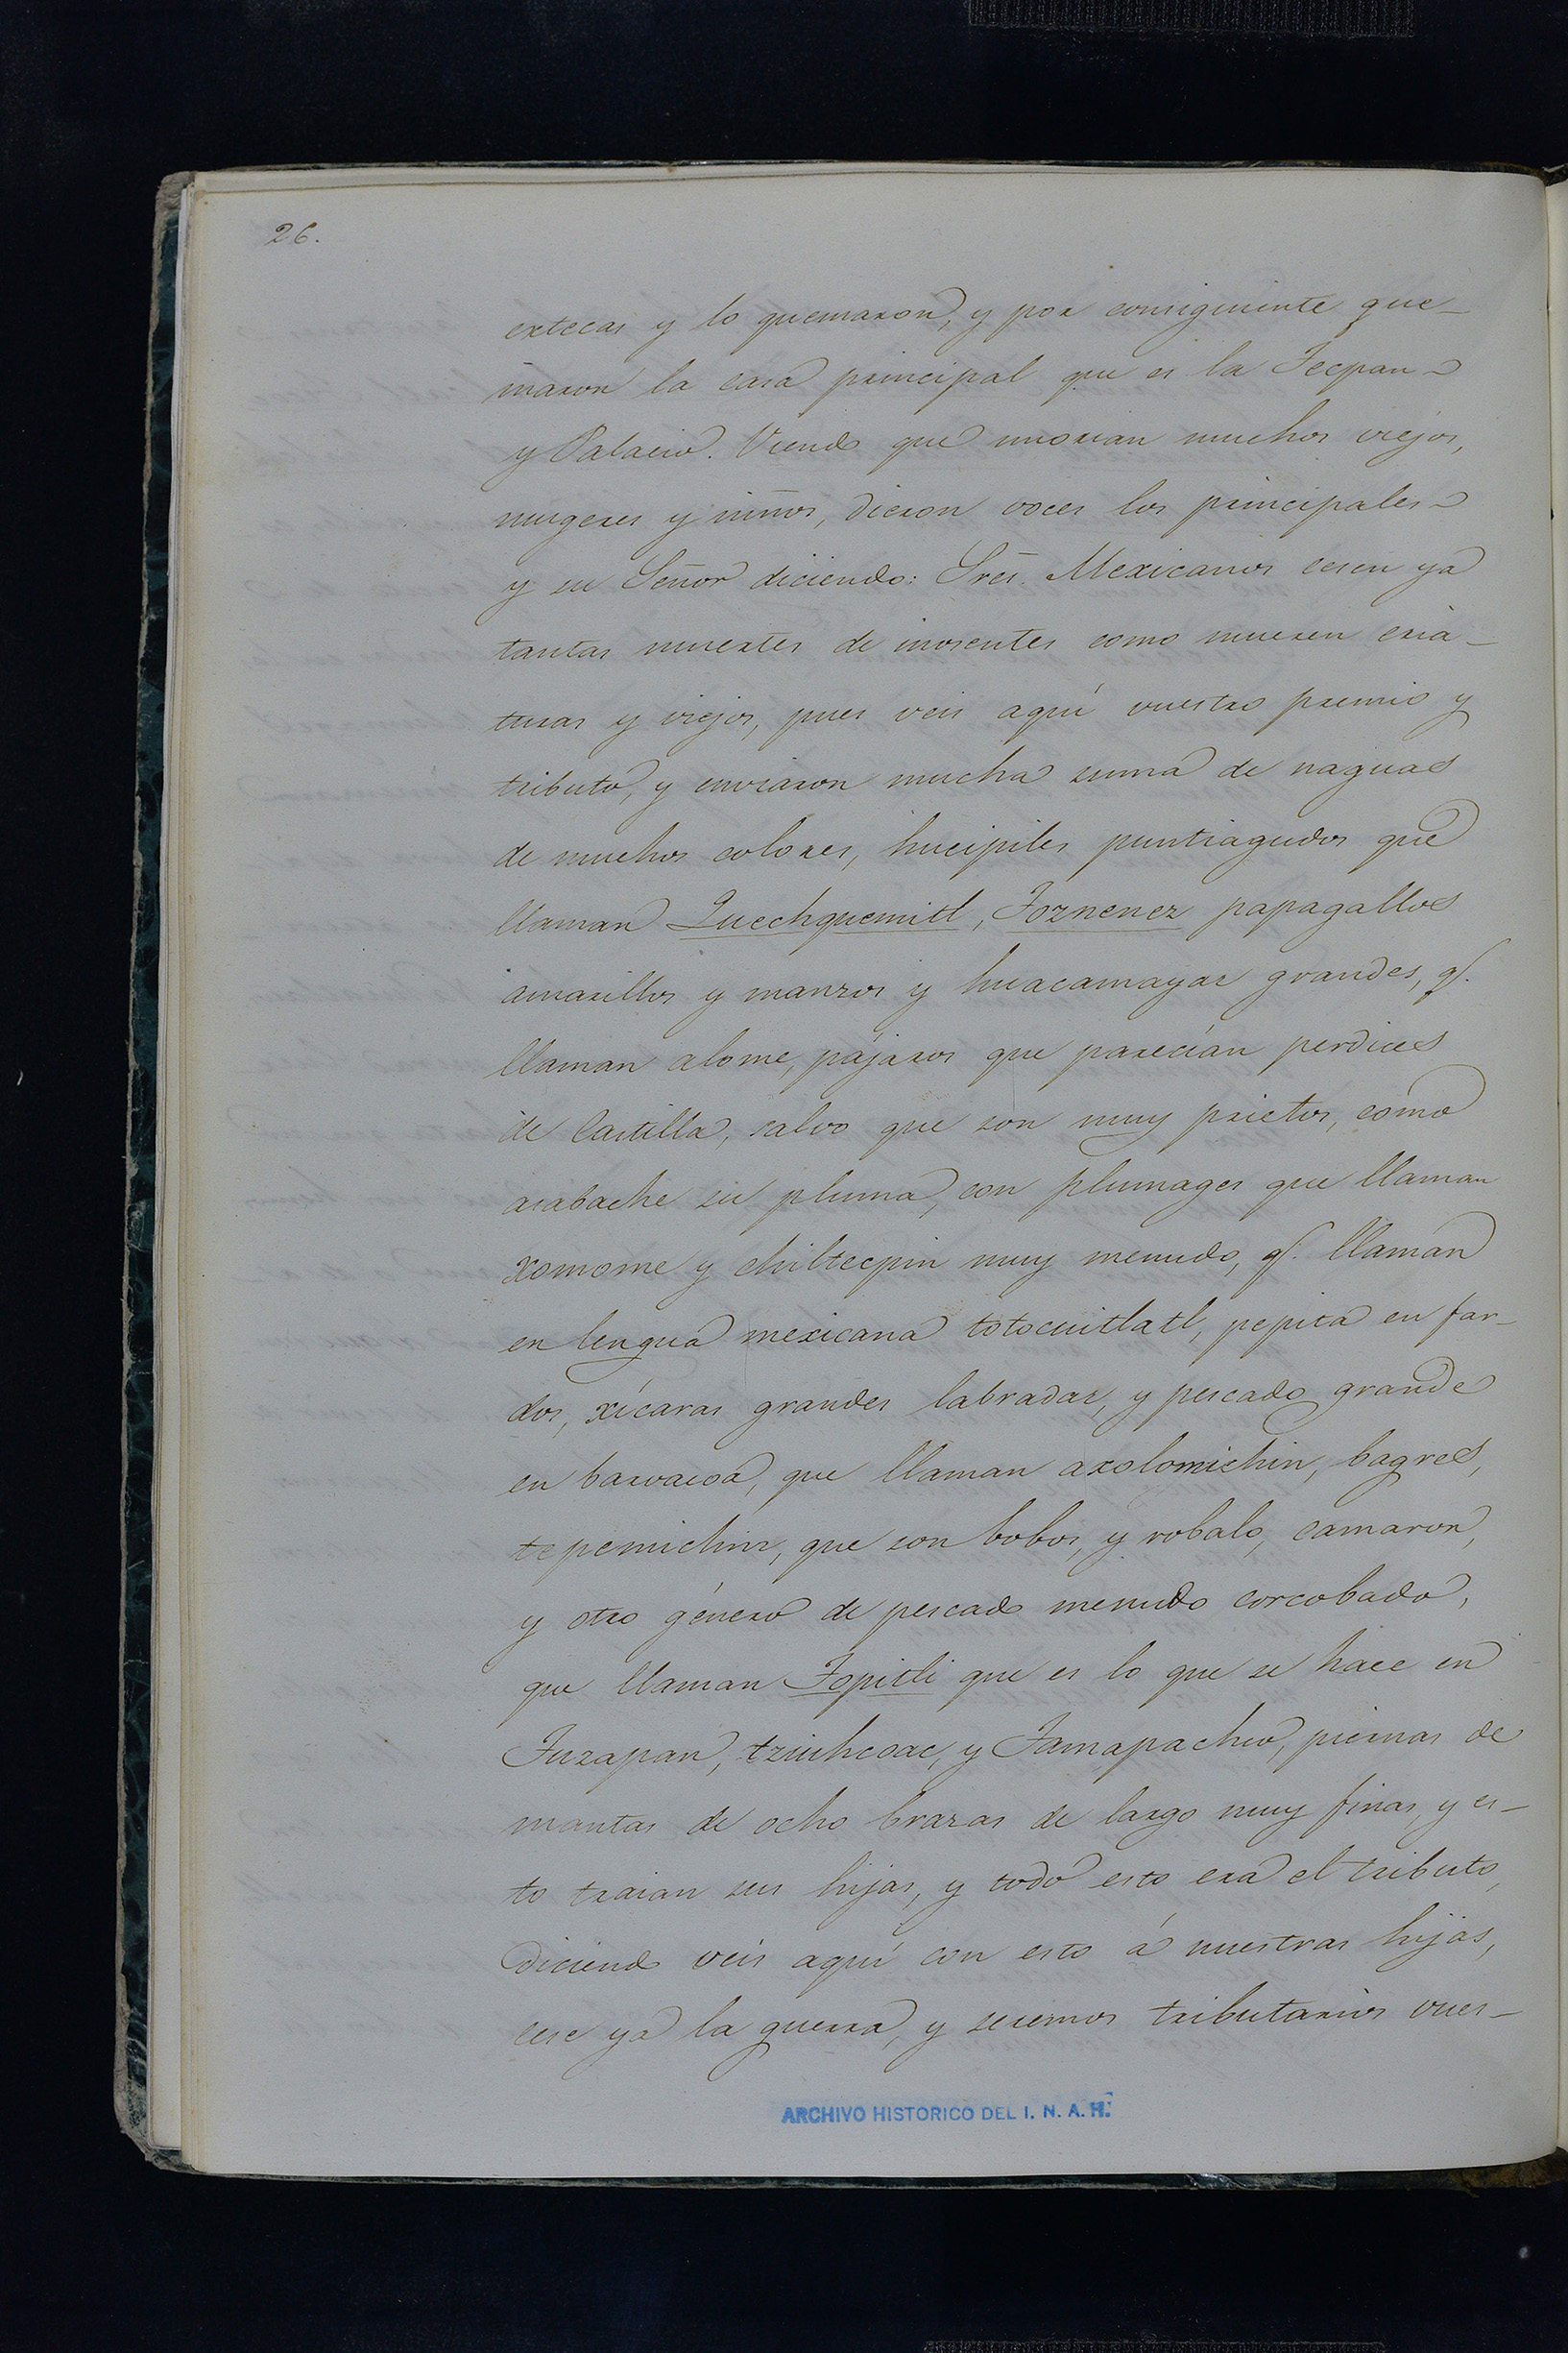 26.
extecas y lo quemaron, y por consiguiente que-
maron la casa principal que es la Tecpan
y Palacio. Viendo que morian muchos viejos,
mugeres y niños, dieron voces los principales
y su Señor diciendo: Sres. Mexicanos cesen ya
tantas muertes de inosentes como mueren cria-
turas y viejos, pues veis aquí vuestro premio y
tributo, y enviaron mucha suma de naguas
de muchos colores, hueipiles puntiagudos que
llaman Quechquemitl, Toznenez papagallos
amarillos y manzos y huacamayas grandes, q.
llaman alome, pájaros que parecían perdices
de Castilla, salvo que son muy prietos, como
asabache su pluma, con plumages que llaman
xomome y chiltecpin muy menudo, q. llaman
en lengua mexicana totocuitlatl, pepita en far-
dos, xícaras grandes labradas, y pescado grande
en barvacoa, que llaman axolomichin, bagres,
tepemichin, que son bobos, y robalo, camaron,
y otro género de pescado menudo corcobado,
que llaman Topitli que es lo que se hace en
Tuzapan, tziuhcoac, y Tamapachco, piernas de
mantas de ocho brazas de largo muy finas, y es-
to traian sus hijas, y todo esto era el tributo,
diciendo veis aquí con esto á nuestras hijas,
cese ya la guerra, y seremos tributarios vues-
ARCHIVO HISTORICO DEL I. N. A. H.